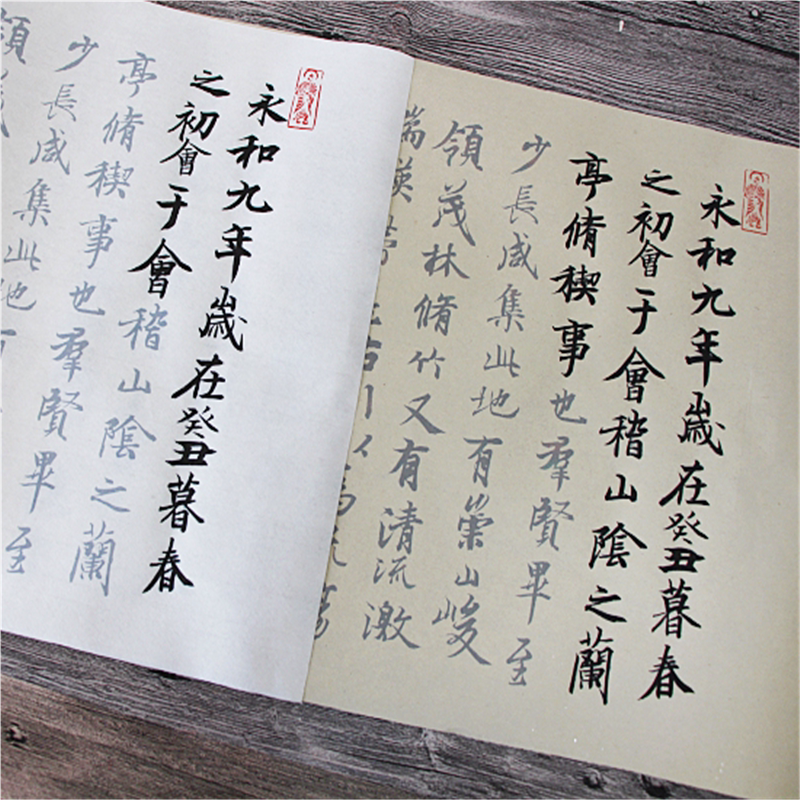 永和九年歲在癸丑暮春
之初會于會稽山陰之蘭
亭脩稧事也羣賢畢至
少長咸集此地有崇山峻
領茂林脩竹又有清流激
湍暎
永和九年歲在癸丑暮春
之初會于會稽山陰之蘭
亭脩稧事也羣賢畢至
少長咸集此地
領茂